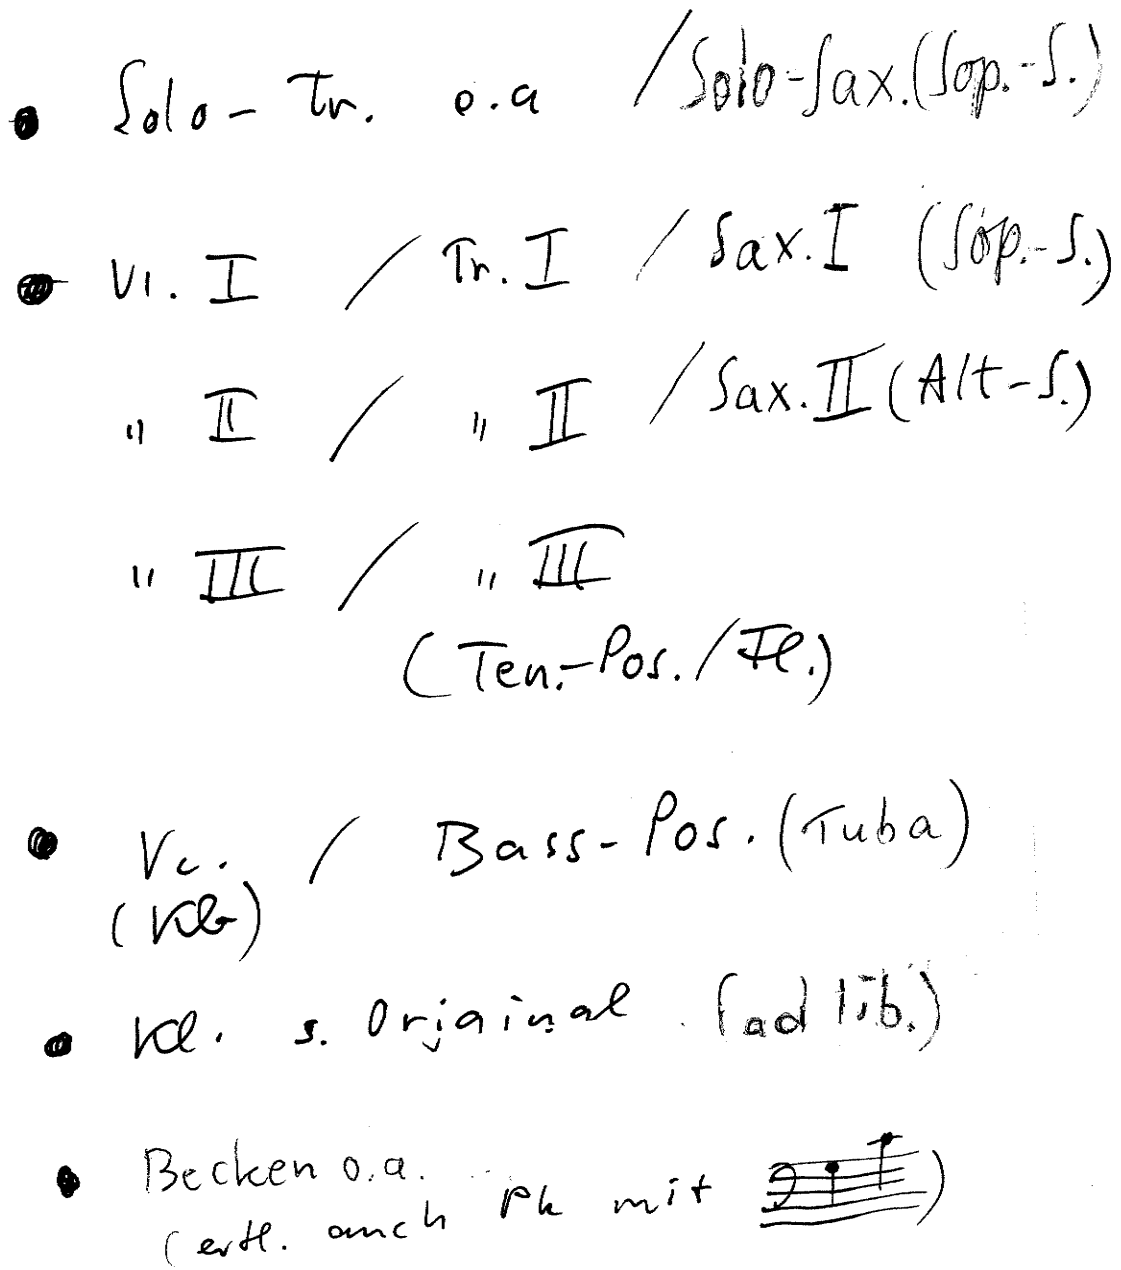 • Solo-Tr. o.a /Solo-Sax.(Sop.-S.)
• Vl. I / Tr. I / Sax. I (Sop.-S.)
" II / " II / Sax. II (Alt-S.)
" III / " III
(Ten.-Pos./Fl.)
• Vc. / Bass-Pos. (Tuba)
(Kb)
• Kl. s. Orjainal (ad lib.)
• Becken o.a.
(evtl. auch Pk mit )